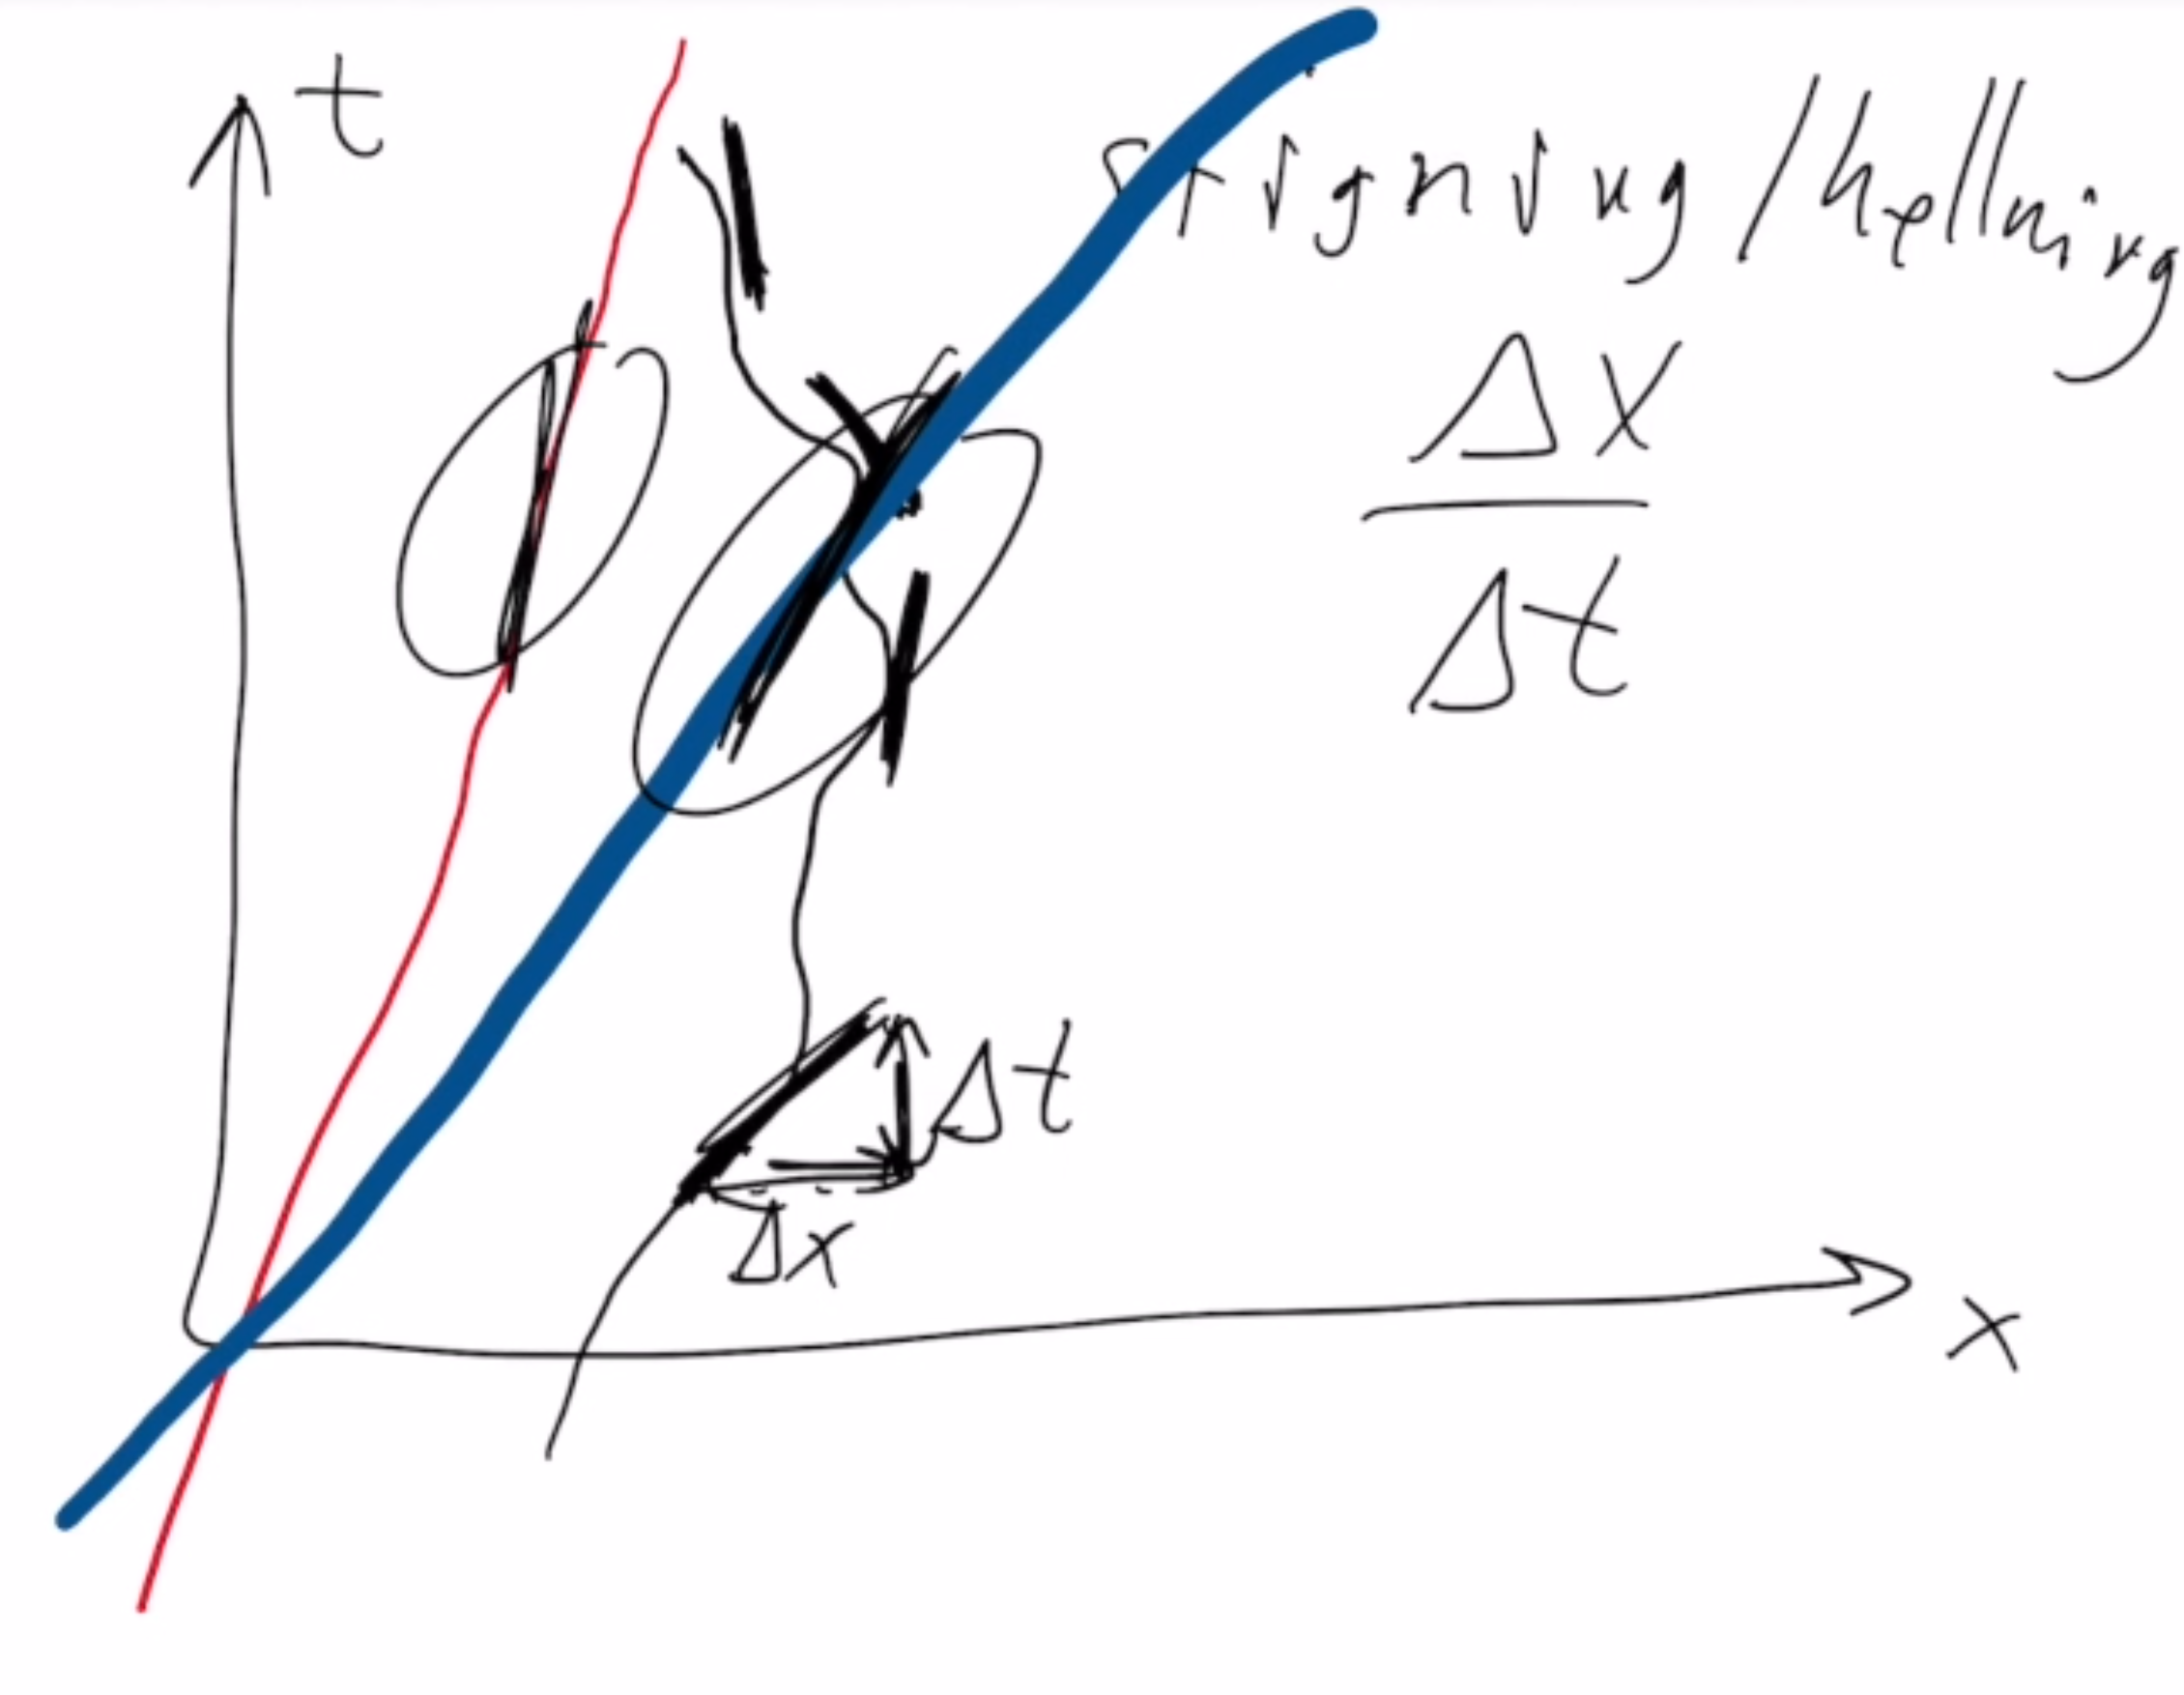 t
Stigning/hellning
Δx
Δt
Δt
Δx
x